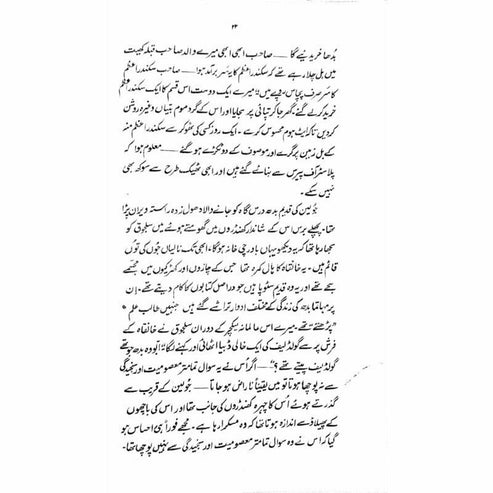 ۲۲
بُدھا خریدئیے گا ــــــ صاحب ابھی ابھی میرے والد صاحب قبلہ کھیت
میں ہل چلا رہے تھے کہ سکندرِ اعظم کا یہ سر برآمد ہوا ــــــ صاحب سکندرِ اعظم
کا سر صرف پچاس روپے میں! میرے ایک دوست اس قسم کا ایک سکندرِ اعظم
خرید کر لے گئے گھر جا کر تپائی پر سجایا اور اس کے گرد موم بتیاں وغیرہ روشن
کر دیں تاکہ ایٹ ہوم محسوس کرے ۔ ایک روز کسی کی ٹھوکر سے سکندرِ اعظم منہ
کے بل زمین پر گرے اور موصوف کے دو ٹکڑے ہو گئے ــــــ معلوم ہوا کہ
پلاسٹر آف پیرس سے بنائے گئے ہیں اور ابھی ٹھیک طرح سے سوکھ بھی
نہیں سکے ۔
جُولین کی قدیم بدھ درس گاہ کو جانے والا دھول زدہ راستہ ویران پڑا
تھا ۔ پچھلے برس اس کے شاندار کھنڈروں میں گھومتے ہوئے میں سلجوق کو
سمجھا رہا تھا کہ یہ دیکھو یہاں باورچی خانہ ہوگا ۔ ابھی تک نالیاں جُوں کی تُوں
قائم ہیں ۔ یہ خانقاہ کا ہال کمرہ تھا جس کے چاروں اور کھڑکیوں میں مجسمے
سجے تھے اور یہ وہ قدیم سٹوپا ہیں جو دراصل کتابوں کا کام دیتے تھے ۔ ان
پر مہاتما بدھ کی زندگی کے مختلف ادوار تراشے گئے ہیں جنہیں طالب علم
"پڑھتے" تھے ۔ میرے اس عالمانہ لیکچر کے دوران سلجوق نے خانقاہ کے
فرش پر سے گولڈ لیف کی ایک خالی ڈبیا اٹھائی اور کہنے لگا "ابو وہ بدھ جو تھے
گولڈ لیف پیتے تھے ؟" ــــــ اگر اس نے یہ سوال تمام تر معصومیت اور سنجیدگی
سے نہ پوچھا ہوتا تو میں یقیناً ناراض ہو جاتا ــــــ جُولین کے قریب سے
گذرتے ہوئے اُس کا چہرہ کھنڈروں کی جانب تھا اور اس کی باچھوں
کے پھیلاؤ سے اندازہ ہوتا تھا کہ وہ مسکرا رہا ہے ۔ مجھے فوراً ہی احساس ہو
گیا کہ اس نے وہ سوال تمام تر معصومیت اور سنجیدگی سے نہیں پوچھا تھا ۔